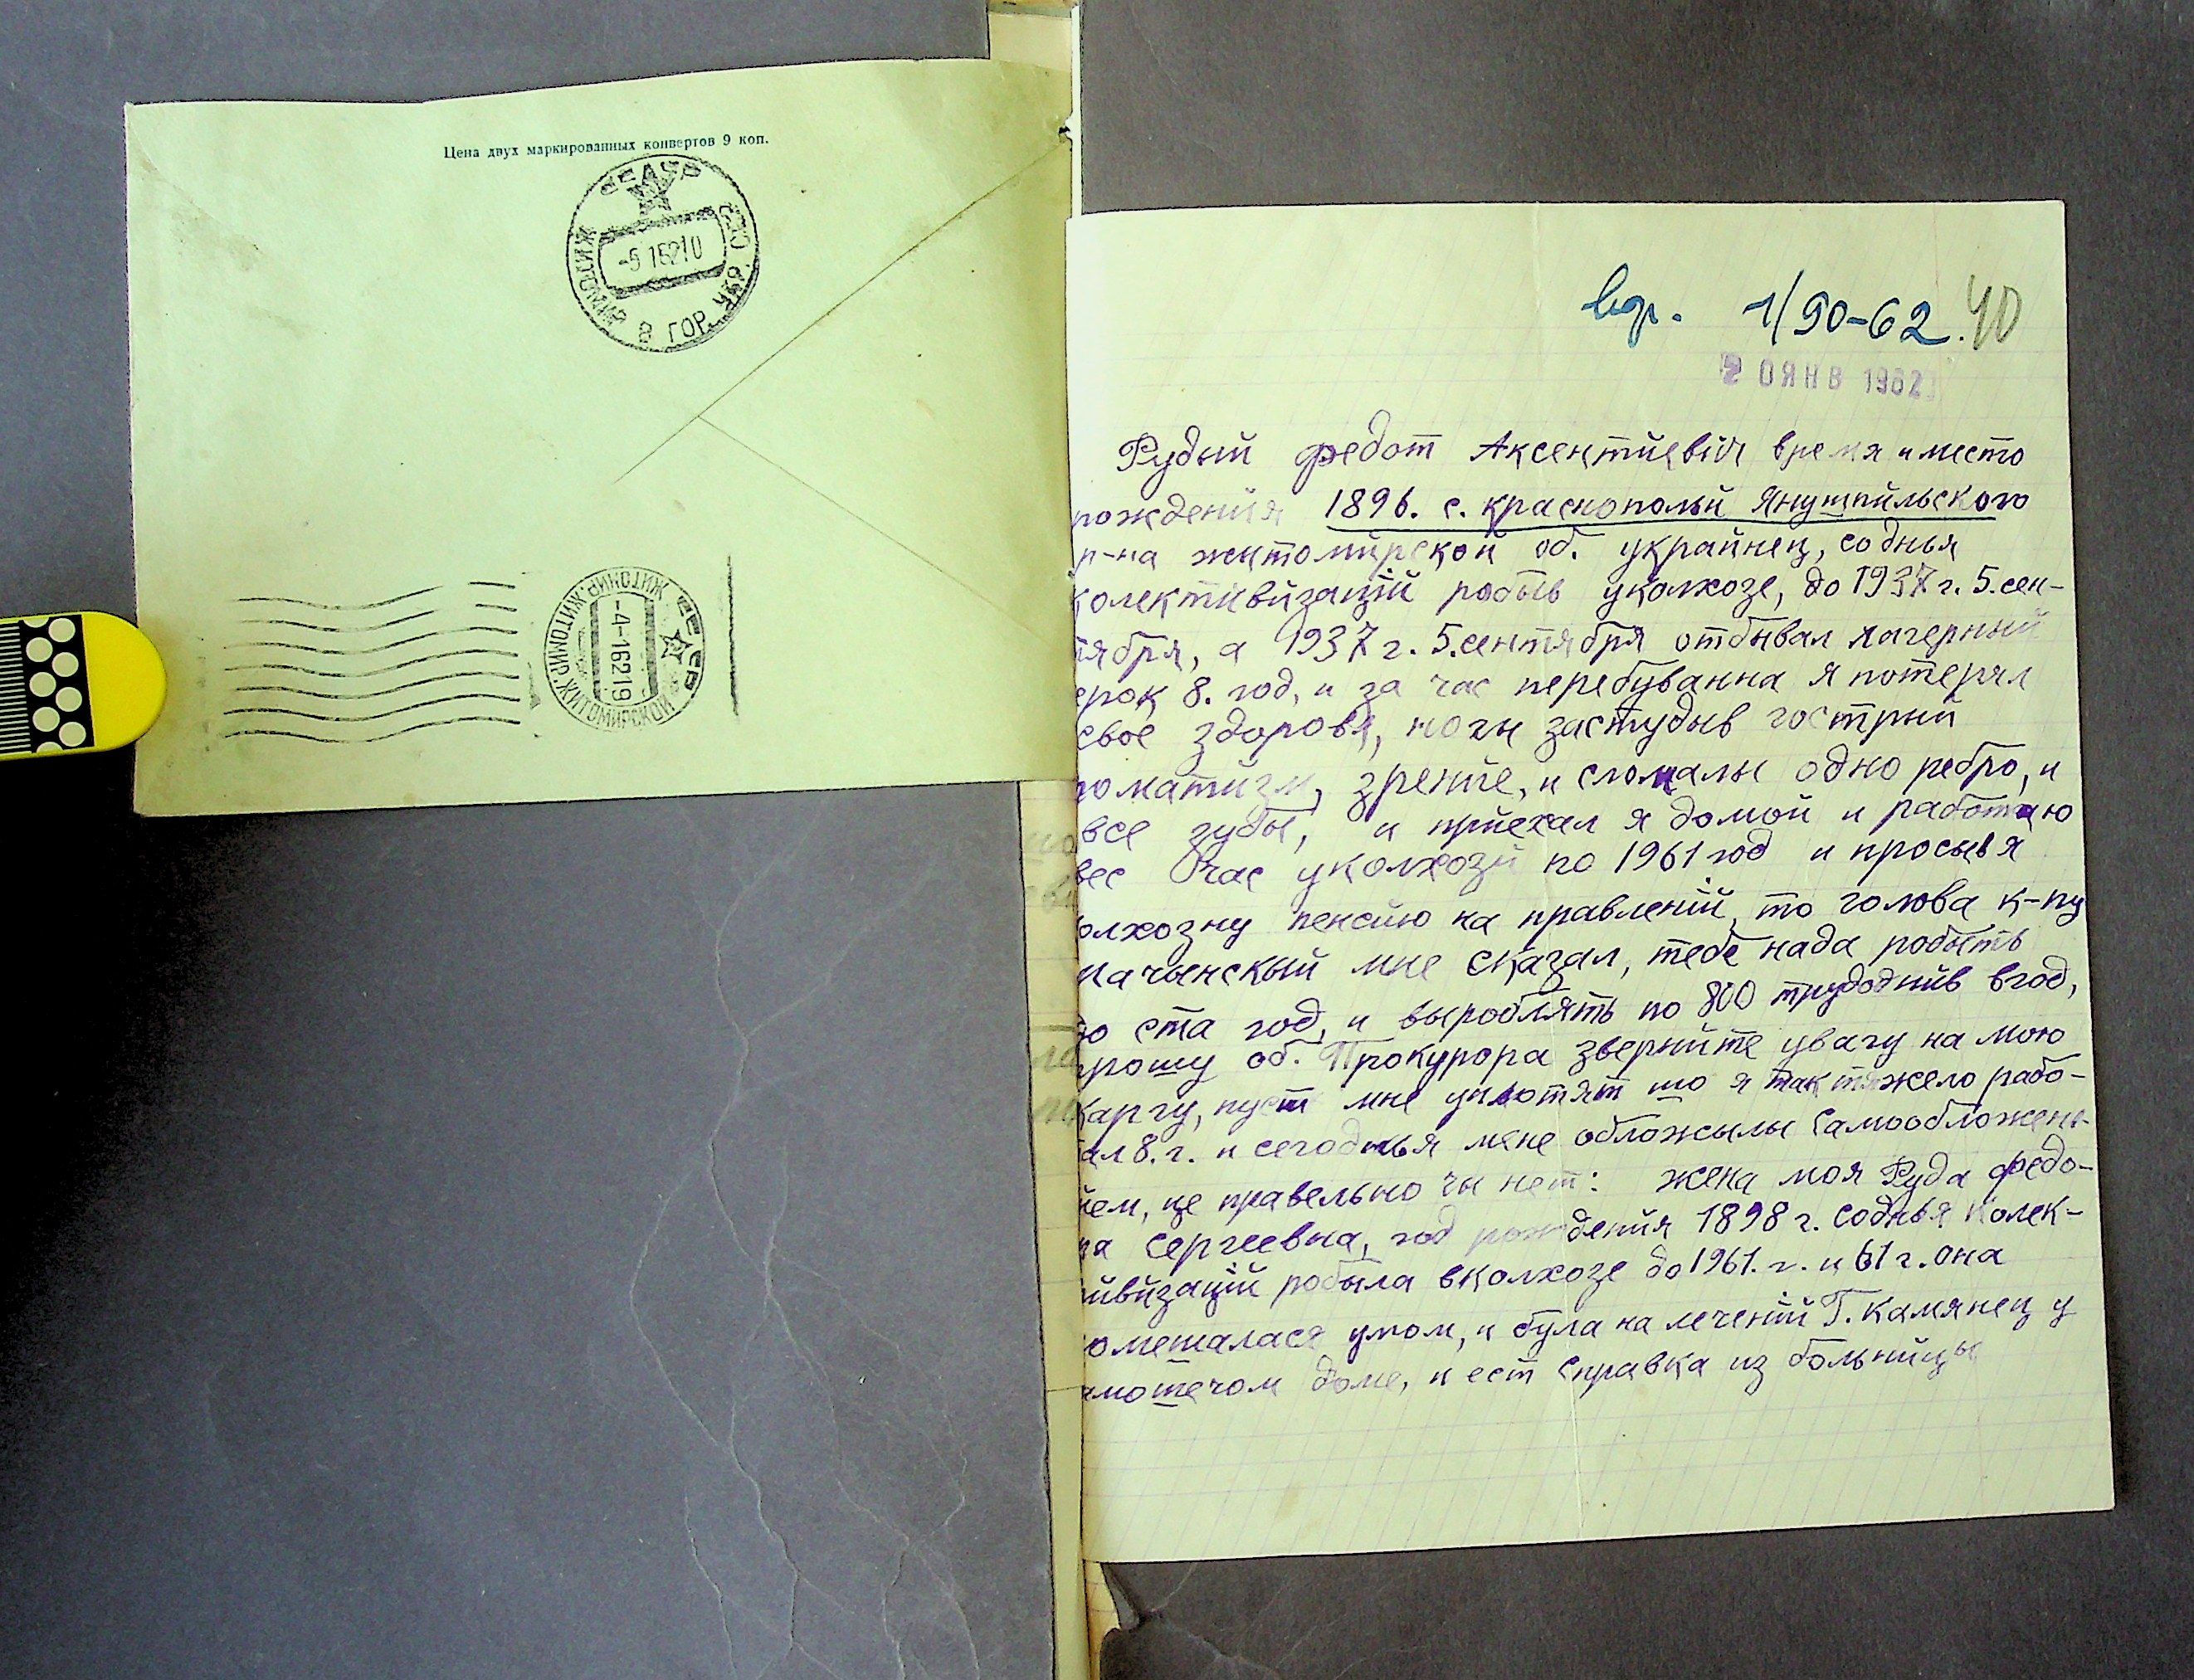 Цена двух маркированных конвертов 9 коп.
СССР
ЖИТОМИР
8 ГОР.
-5 1 62 10
СССР
ЖИТОМИР. ЖИТОМИРСКОЙ
-4-1 62 19
1/90-62. 40
2 0 ЯНВ 1962
Рудый федот Аксентйевіч время и место
рождения 1896. с. краснополый Янушпильского
р-на житомйрской об. украйнец, со днья
колектйвйзацій робыв уколхозе, до 1937 г. 5. сен-
тября, а 1937 г. 5. сентября отбывал лагерный
срок 8. год, и за час перебуванна я потерял
свое здоровя, ногы застудыв гострый
роматйзм, зреніе, и сломалы одно ребро, и
все зубы, и прйехал я домой и работаю
вес час уколхозй по 1961 год и просыв я
олхозну пенсйю на правленій, то голова к-пу
мачынскый мне сказал, тебе нада робыть
до ста год, и выроблять по 800 трудоднйв вгод,
прошу об. Прокурора звернйте увагу на мою
каргу, пуст мне уплотят шо я так тяжело рабо-
ал 8. г. и сегоднья мене обложылы самообложени-
йем, це правельно чы нет: жена моя Руда федо-
на сергеевна, год рождения 1898 г. соднья колек-
йвйзацій робыла вколхозе до 1961. г. и 61 г. она
омешалася умом, и була на леченій Г. Камянец у
мошечом доме, и ест справка из больнйцы